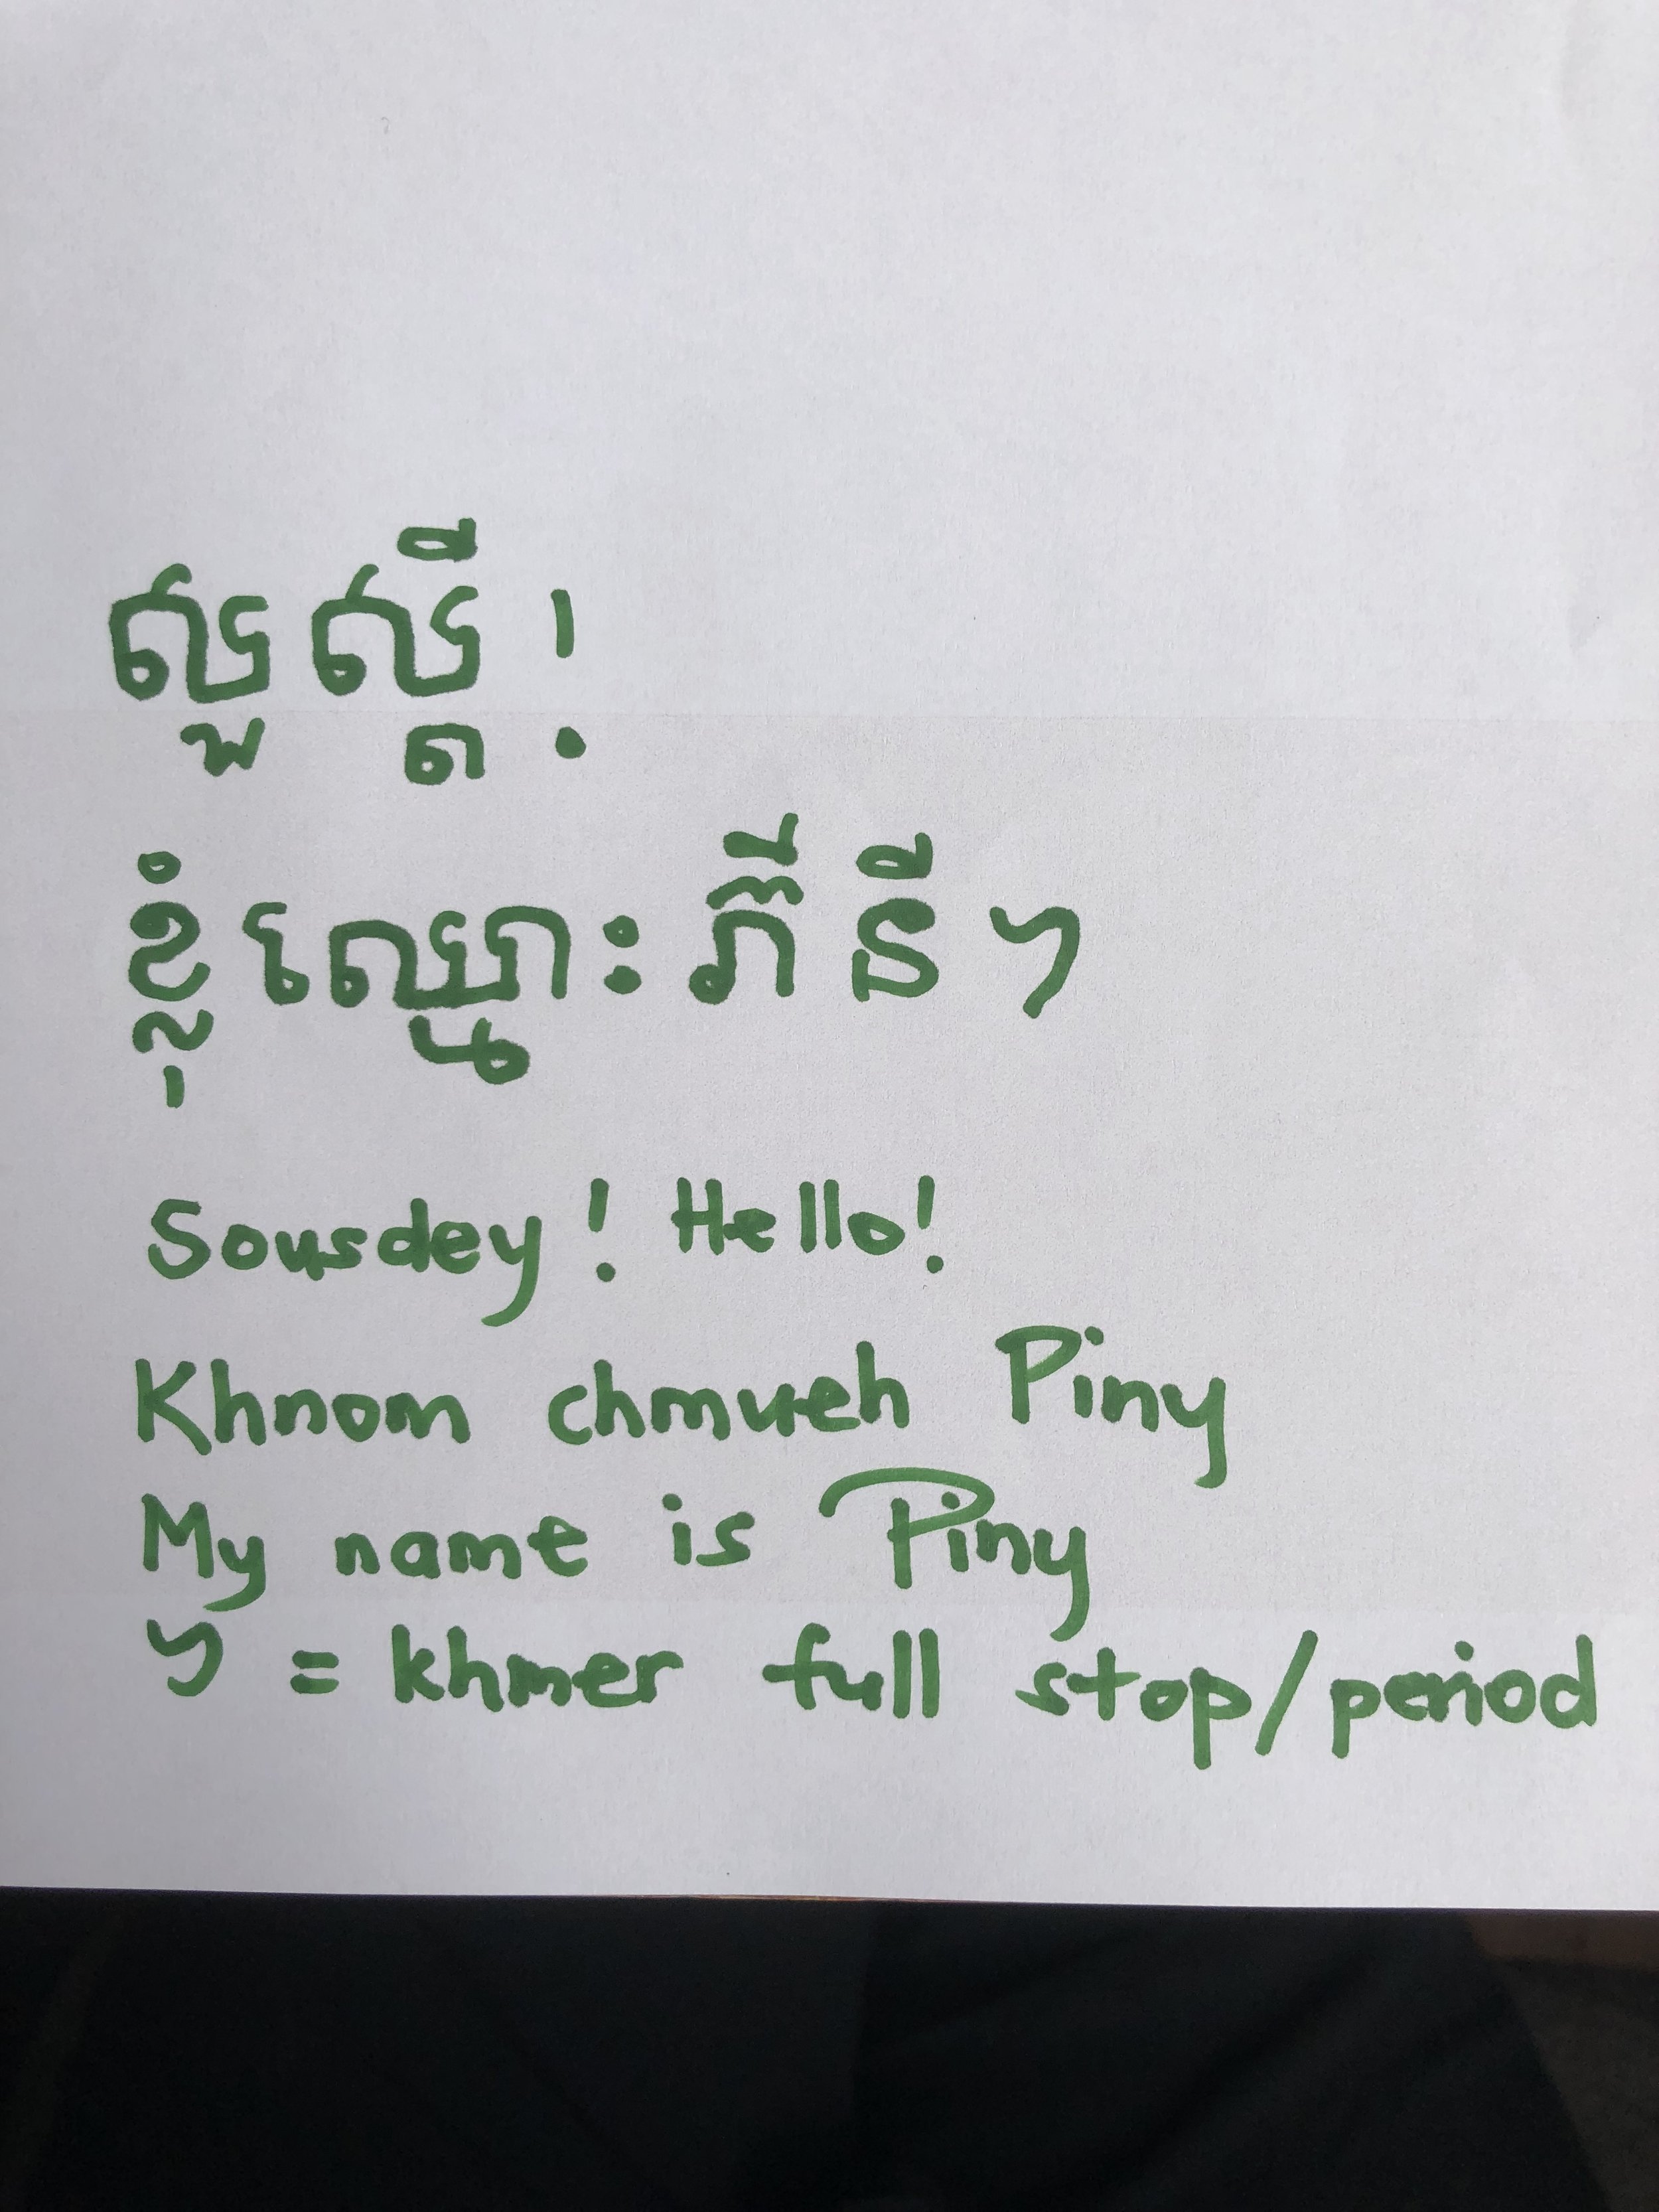 សួស្ដី!
ខ្ញុំឈ្មោះភីនី។
Sousdey! Hello!
Khnom chmueh Piny
My name is Piny
។ = khmer full stop/period